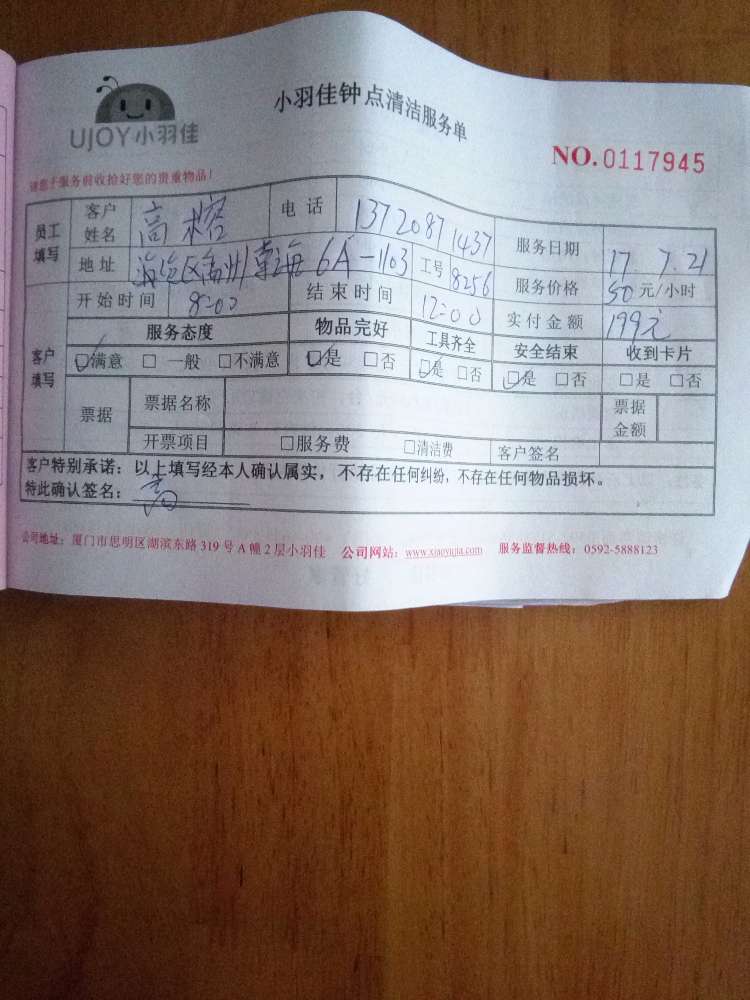 UJOY小羽佳
小羽佳钟点清洁服务单
NO.0117945
请您于服务前收拾好您的贵重物品!
员工填写 客户姓名 高榕 电话 13720871437 服务日期 17.7.21
地址 海沧区 海 6A-1103 工号 8256 服务价格 50元/小时
客户填写 开始时间 8:00 结束时间 12:00 实付金额 199元
服务态度 物品完好 工具齐全 安全结束 收到卡片
☑满意 □一般 □不满意 ☑是 □否 ☑是 □否 ☑是 □否 □是 □否
票据 票据名称 票据金额
开票项目 □服务费 □清洁费 客户签名
客户特别承诺:以上填写经本人确认属实,不存在任何纠纷,不存在任何物品损坏。
特此确认签名:高
公司地址:厦门市思明区湖滨东路319号A幢2层小羽佳 公司网站:www.xiaoyujia.com 服务监督热线:0592-5888123